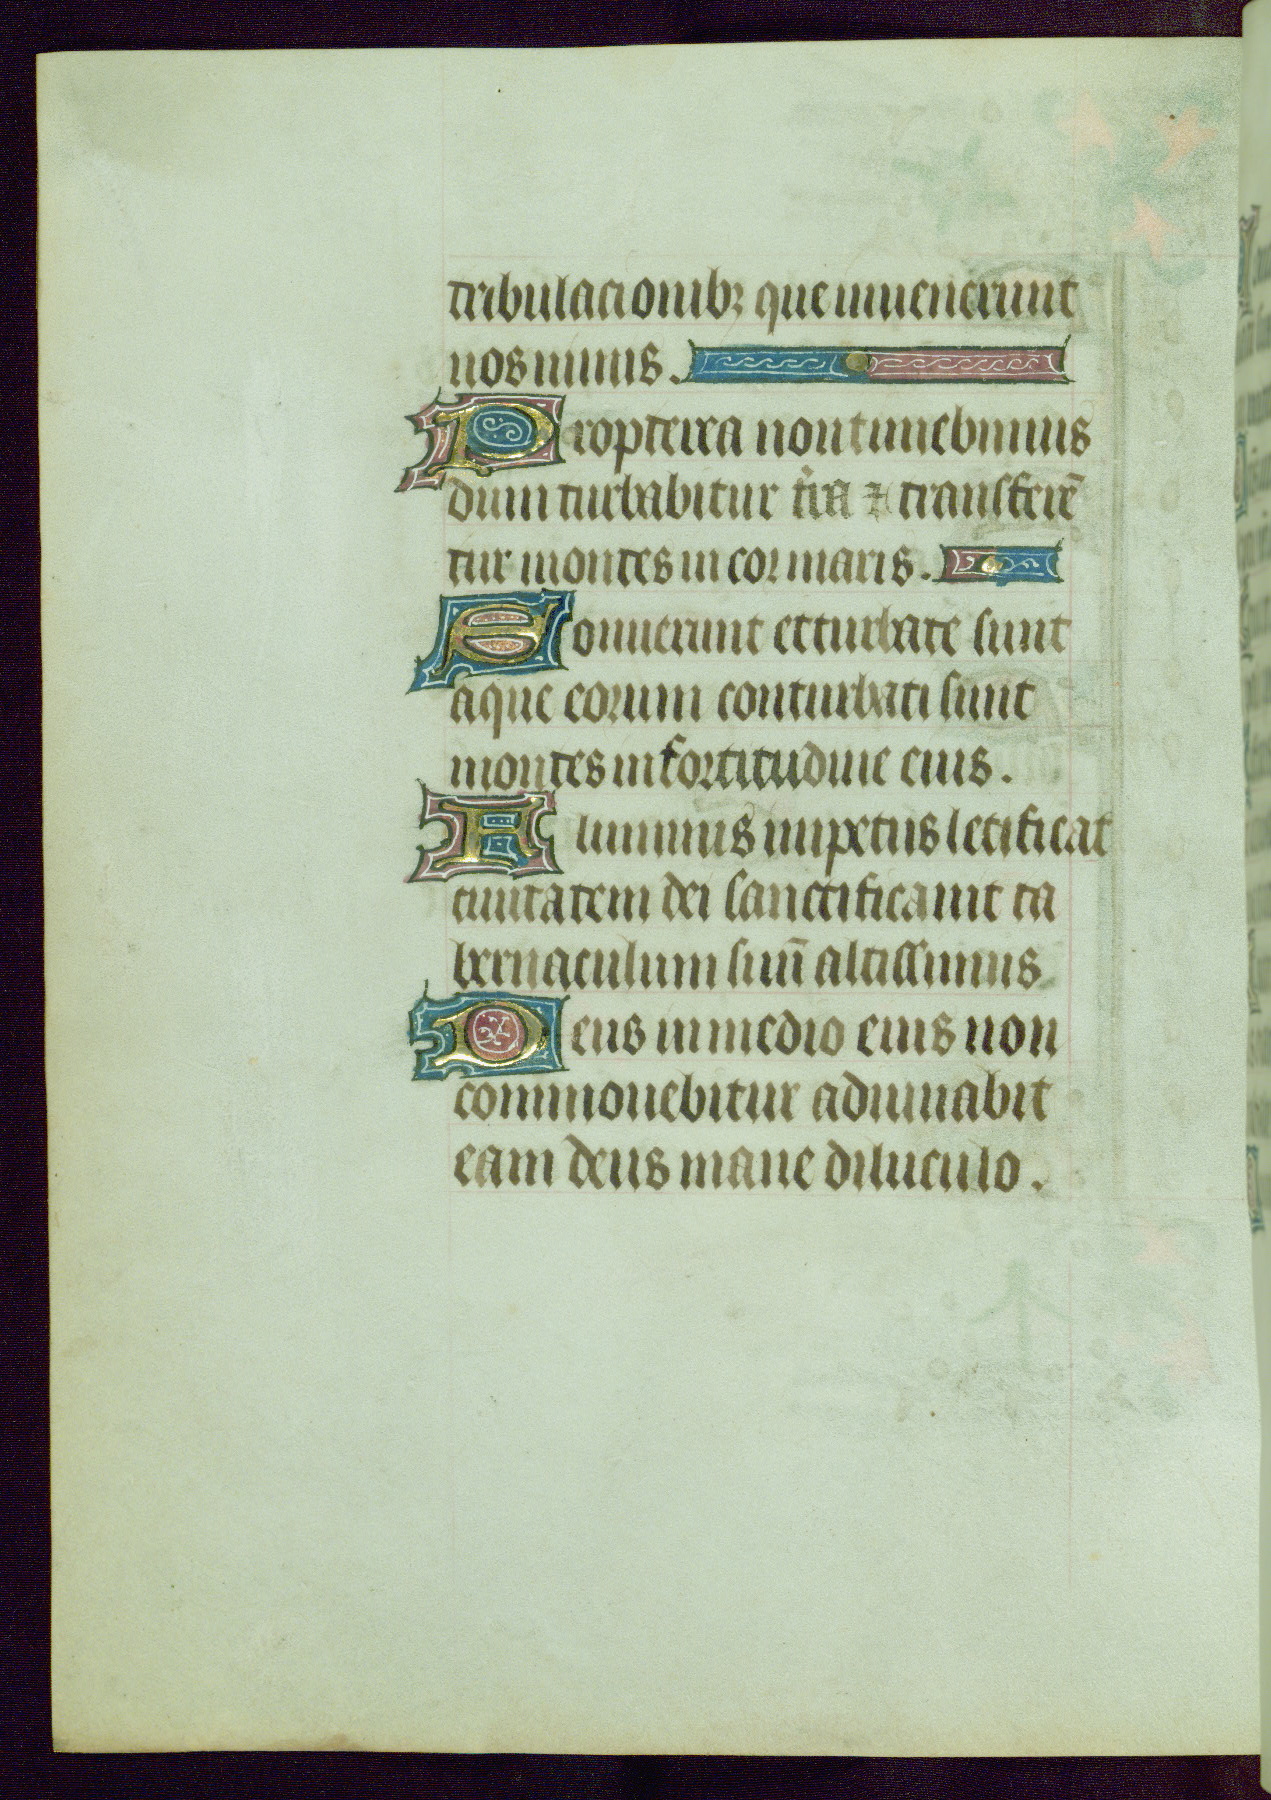 tribulacionibꝫ que inuenerunt
nos nimis.
Propterea non timebimus
dum turbabitur tr̃a ⁊ transferẽ
tur montes in cor maris.
Sonuerunt et turbate sunt
aque eorum conturbati sunt
montes in fortitudine eius.
Fluminis impetus letificat
ciuitatem dei sanctificauit ta
bernaculum suũ altissimus
Deus in medio eius non
commouebitur adiuuabit
eam deus mane diluculo.